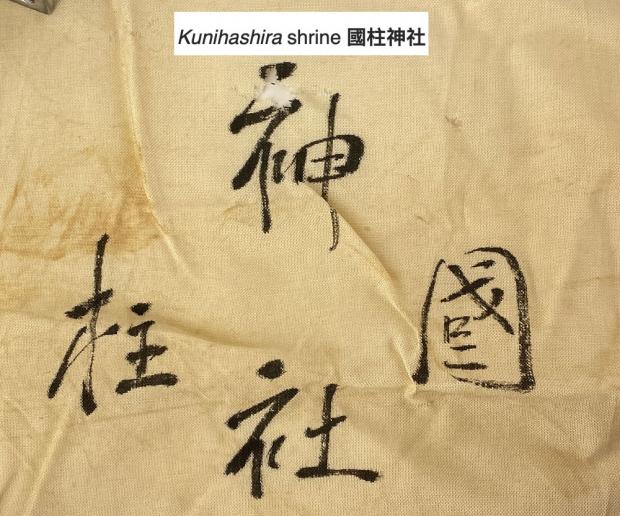 Kunihashira shrine 國柱神社
神
國
柱
社